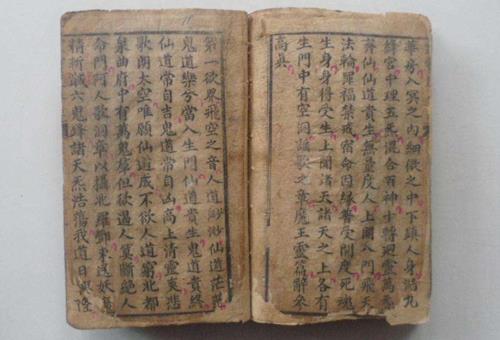 華房入冥之内細微之中下鎮人身泥九
絳宮中理五炁混合百神十轉迴靈萬炁
齊仙仙道貴生無量度人上開八門飛天
法輪罪福禁戒宿命因緣普受開度死魂
生身身得受生上聞諸天諸天之上各有
生門中有空洞謠歌之章魔王靈篇辭參
高眞
第一欲界飛空之音人道渺渺仙道茫茫
鬼道樂兮當人生門仙道貴生鬼道貴終
仙道常自吉鬼道常自凶高上清靈爽悲
歌朗太空唯願仙道成不欲人道窮北都
泉曲府中有萬鬼羣但欲遏人算斷絕人
命門阿人歌洞章以攝北羅酆束送妖魔
精斬馘六鬼鋒諸天炁浩蕩我道日興隆